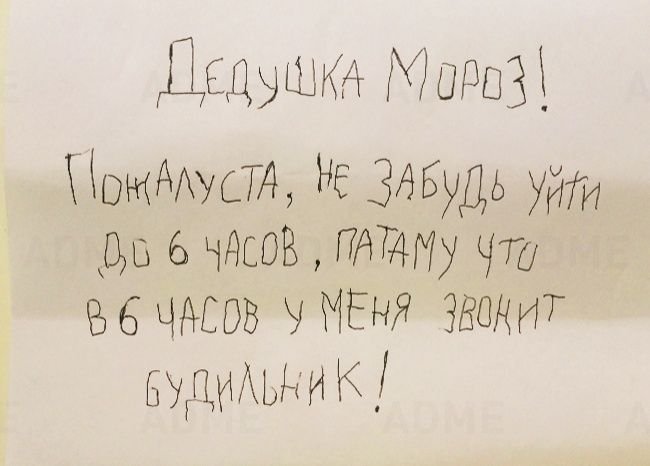 Дедушка Мороз!
Пожалуста, не забудь уйти
до 6 часов, патаму что
в 6 часов у меня звонит
будильник!
ADME
ADME